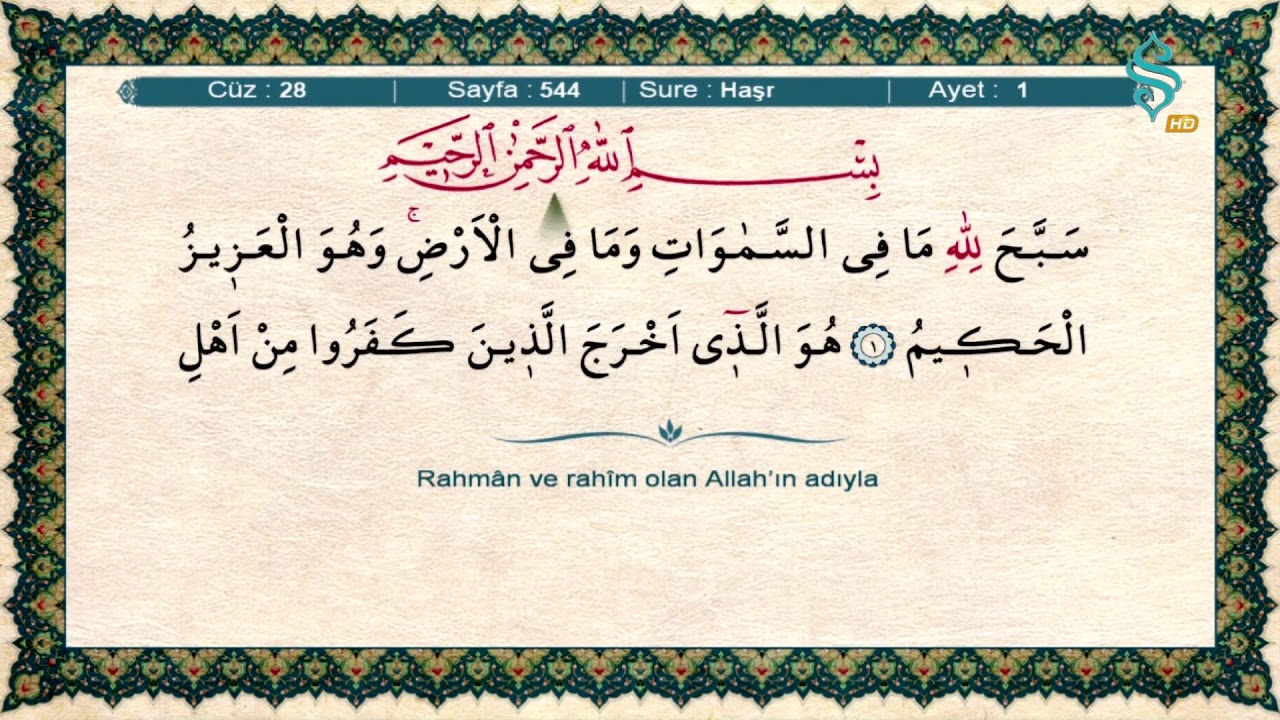 Cüz : 28 | Sayfa : 544 | Sure : Haşr | Ayet : 1
HD
بِسْمِ ٱللّٰهِ ٱلرَّحْمٰنِ ٱلرَّحِيمِ
سَبَّحَ لِلّٰهِ مَا فِى السَّمٰوَاتِ وَمَا فِى الْاَرْضِۚ وَهُوَ الْعَزٖيزُ
الْحَكٖيمُ ١ هُوَ الَّذٖٓى اَخْرَجَ الَّذٖينَ كَفَرُوا مِنْ اَهْلِ
Rahmân ve rahîm olan Allah’ın adıyla